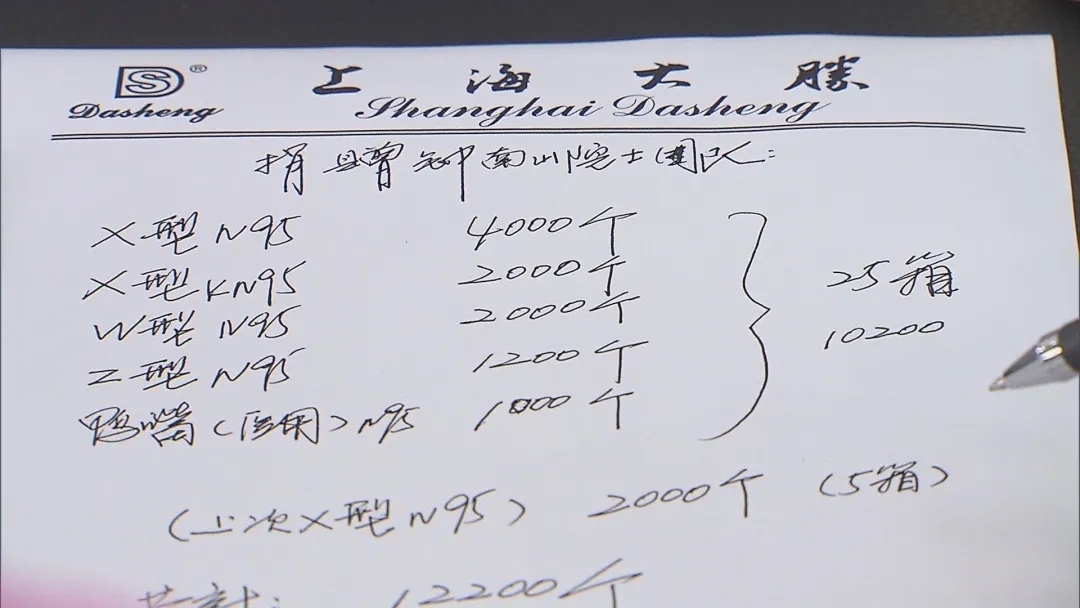 DS®
Dasheng
上海大勝
Shanghai Dasheng
捐赠钟南山院士团队：
X型 N95 4000个
X型 KN95 2000个
W型 N95 2000个
Z型 N95 1200个
鸭嘴（医用）N95 1000个
25箱
10200
（上次X型N95） 2000个 （5箱）
共计： 12200个